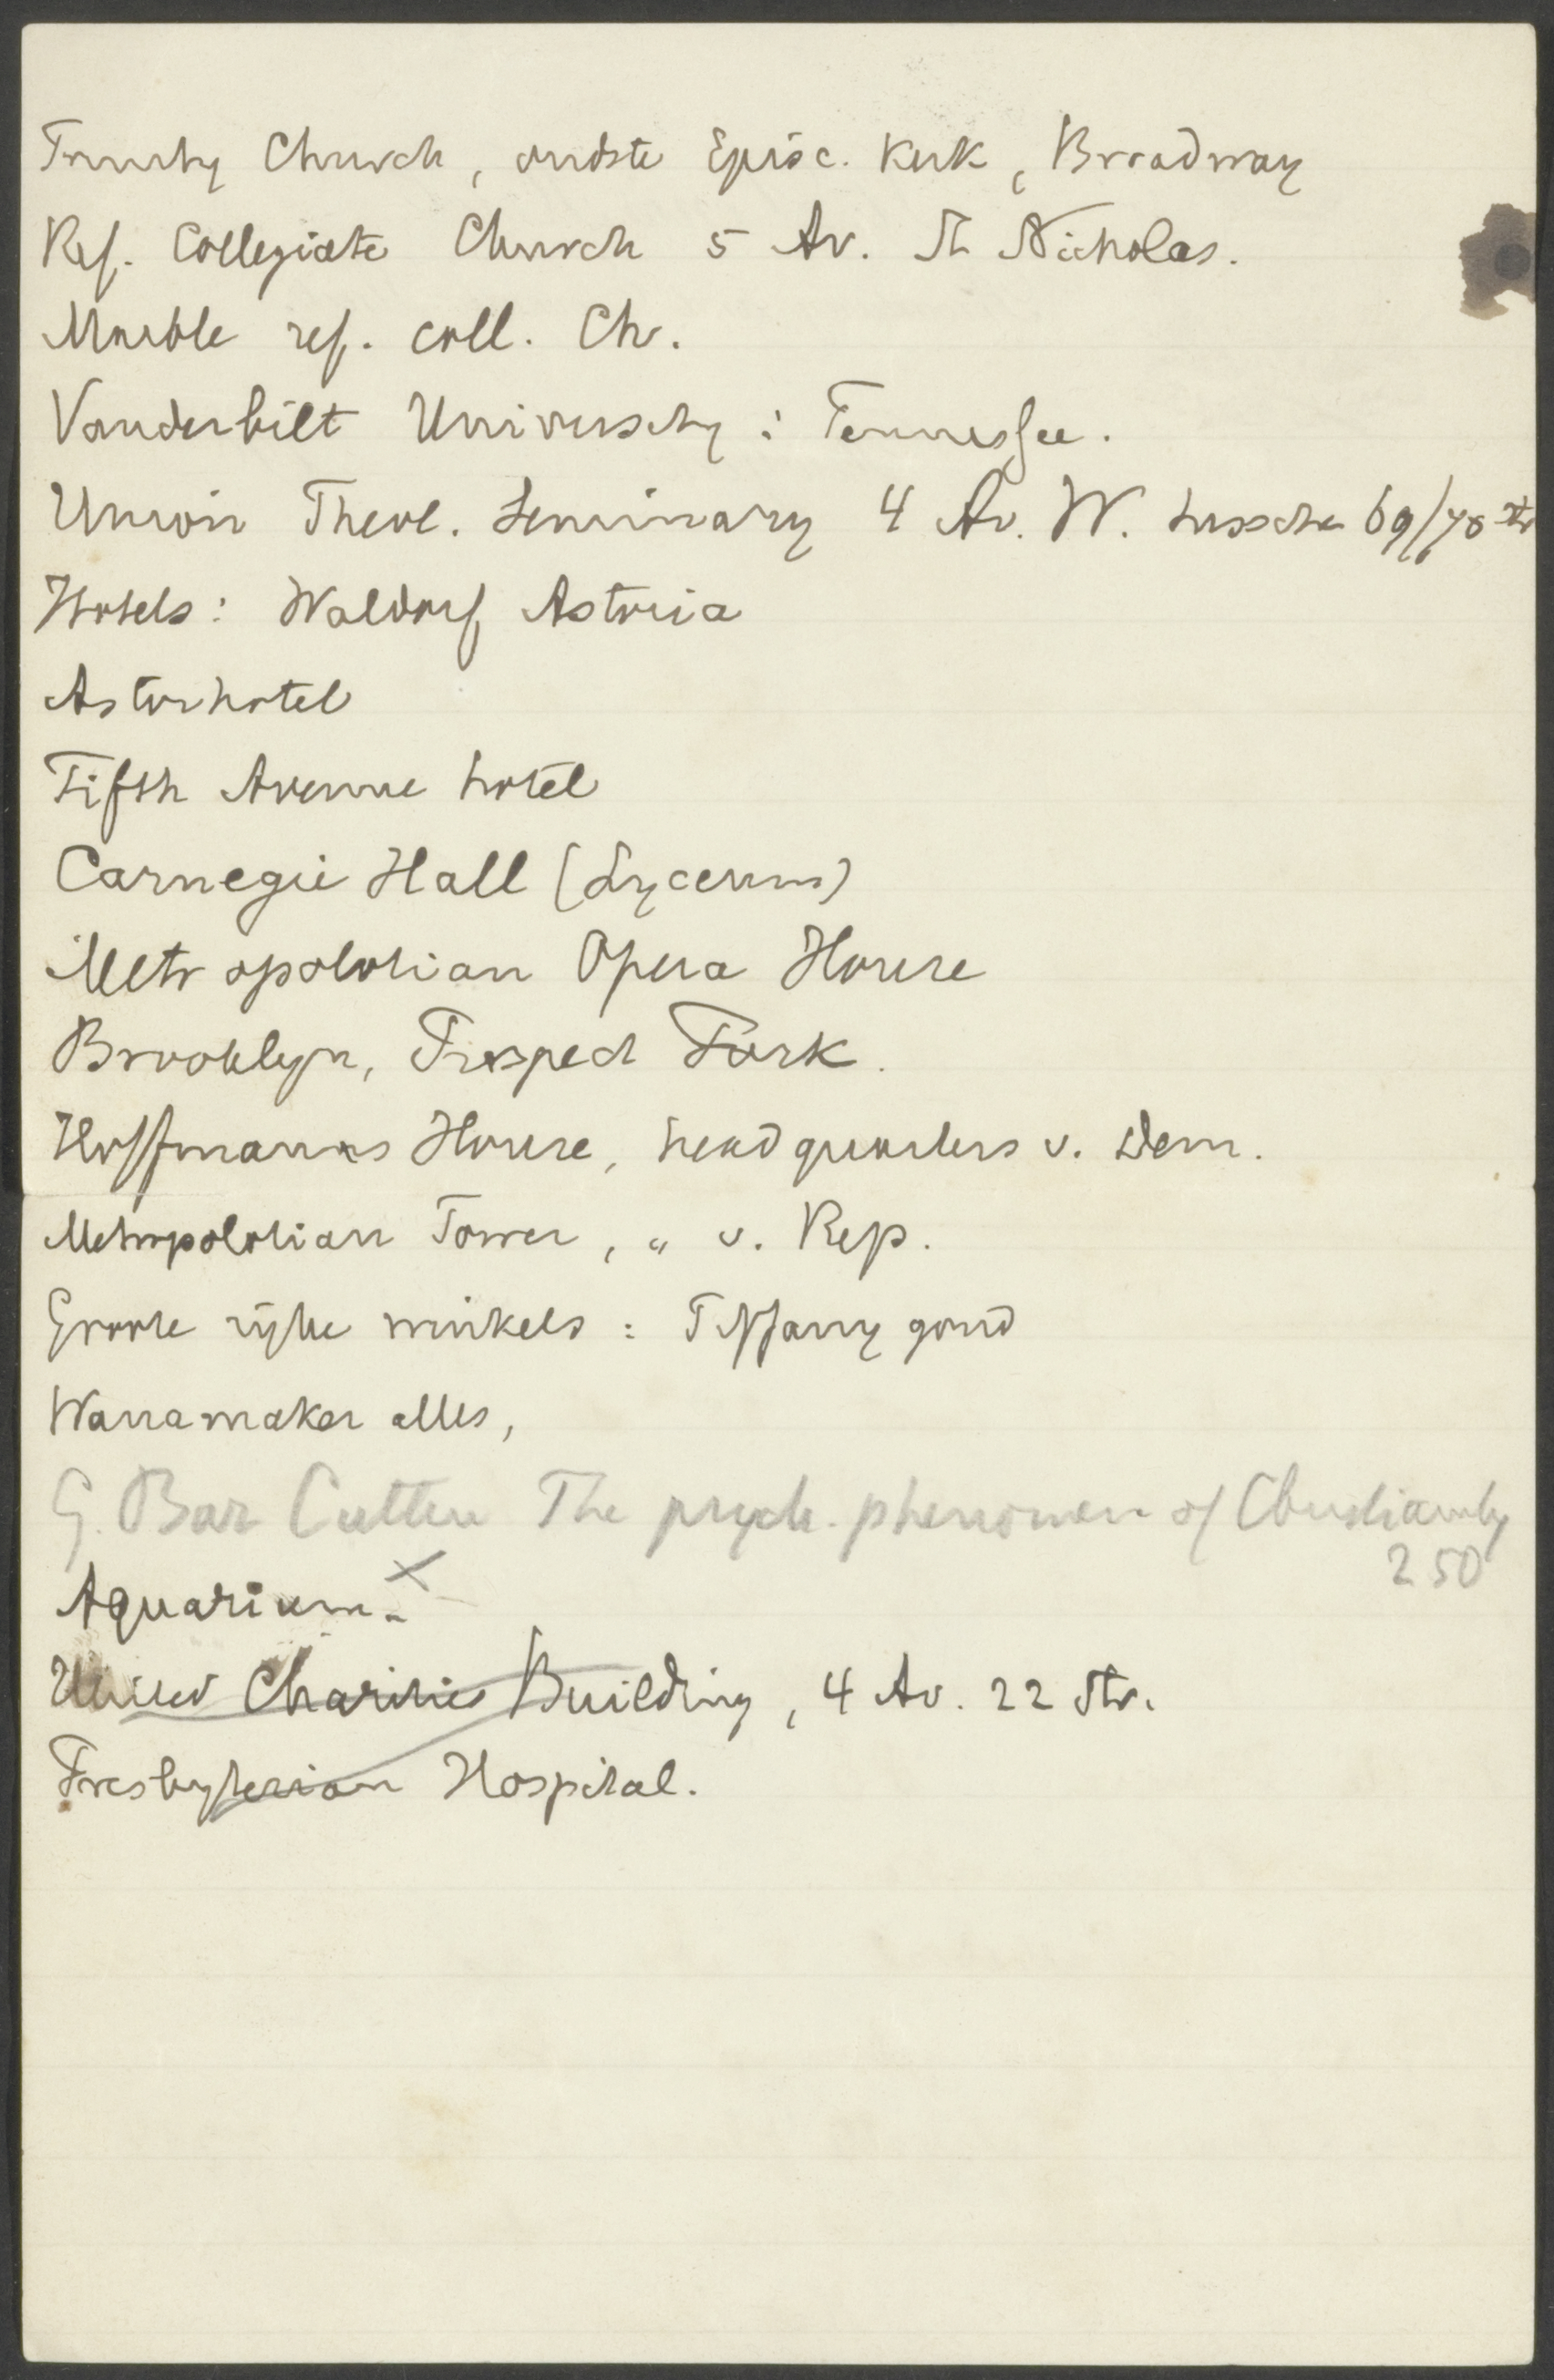 Trinity Church, oudste Episc. Kerk, Broadway
Ref. Collegiate Church 5 Av. St Nicholas.
Marble ref. coll. Ch.
Vanderbilt University: Tennessee.
Union Theol. Seminary 4 Av. W. tusschen 69/70 Str
Hotels: Waldorf Astoria
Astorhotel
Fifth Avenue hotel
Carnegie Hall (Lyceum)
Metropolotian Opera House
Brooklyn, Prospect Park.
Hoffmanns House, headquarters v. Dem.
Metropolotian Tower, " v. Rep.
Groote rijke winkels: Tiffany goud
Wannamaker alles,
G. Bar Cutten The psych. phenomen of Christianity
250
Aquarium.
United Charities Building, 4 Av. 22 Str.
Presbyterian Hospital.